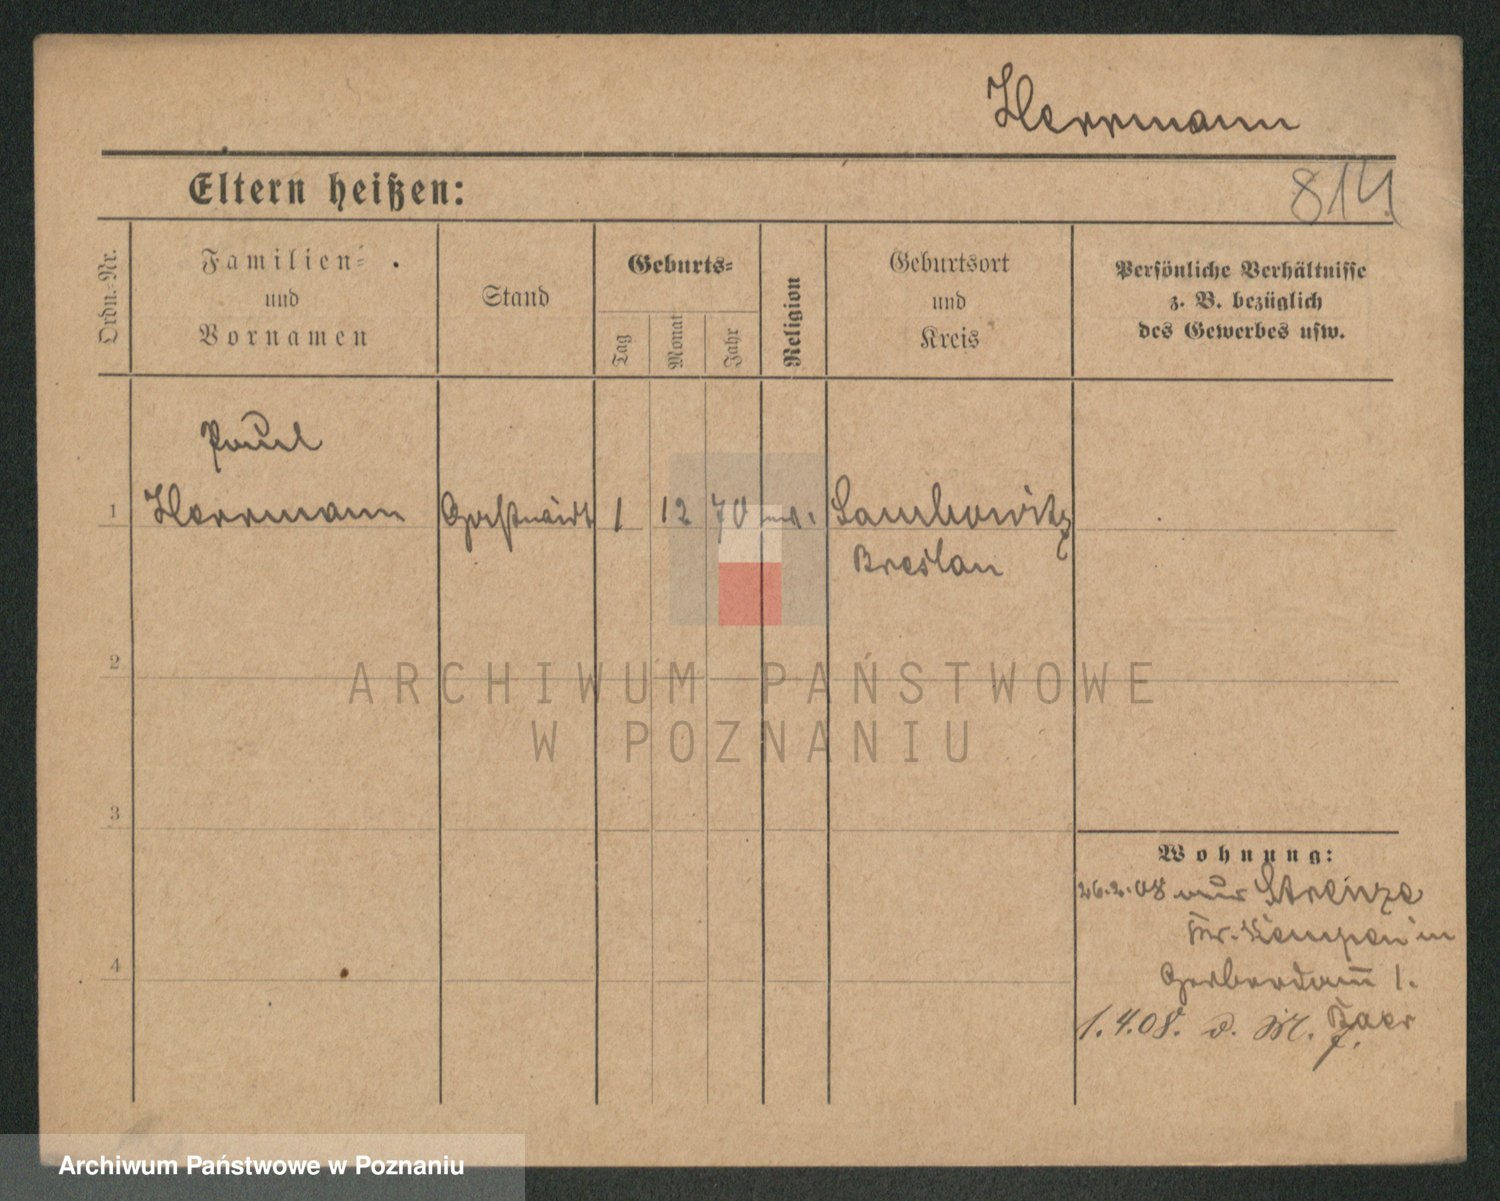 Herrmann
Eltern heißen:
814
Ordn.-Nr.
Familien-
und
Vornamen
Stand
Geburts-
Tag
Monat
Jahr
Religion
Geburtsort
und
Kreis
Persönliche Verhältnisse
z. B. bezüglich
des Gewerbes usw.
Paul
1 Herrmann Gastwirt 1 12 70 Sambowitz
Breslau
2
3
4
ARCHIWUM PAŃSTWOWE
W POZNANIU
Wohnung:
26.2.08 Strenze
Kr. Kempen in
Gerberdamm 1.
1.4.08.
Archiwum Państwowe w Poznaniu